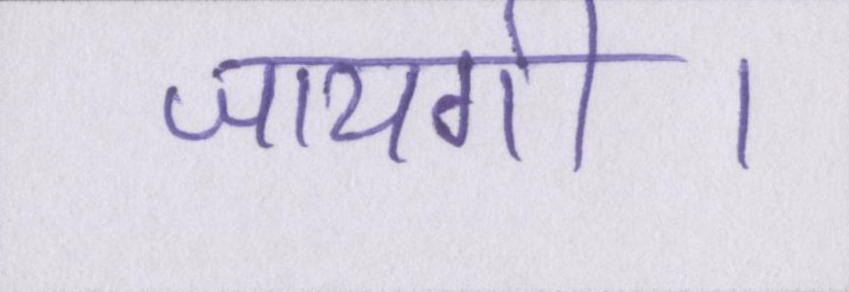 जायगी ।